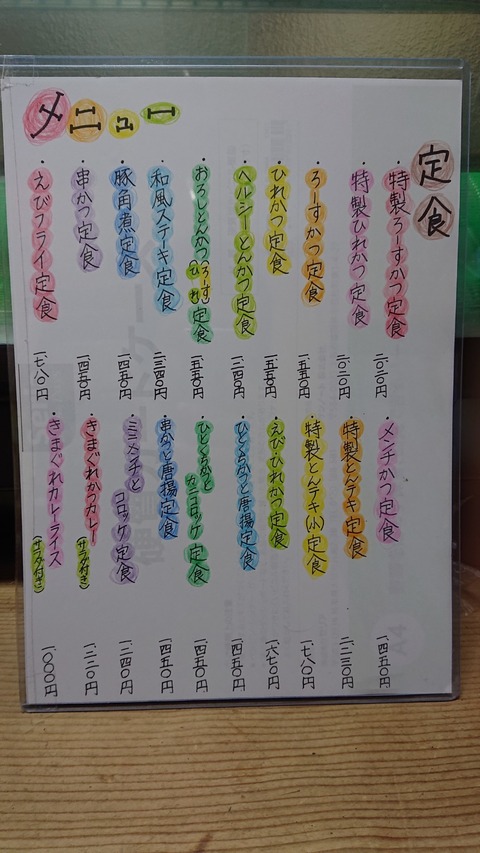 メニュー
定食
・特製ろーすかつ定食 二、〇二〇円
・特製ひれかつ定食 二、〇二〇円
・ろーすかつ定食 一、五五〇円
・ひれかつ定食 一、五五〇円
・ヘルシーとんかつ定食 一、二四〇円
・おろしとんかつ(ろーす ひれ)定食 一、五五〇円
・和風ステーキ定食 二、三四〇円
・豚角煮定食 一、四五〇円
・串かつ定食 一、四五〇円
・えびフライ定食 一、七八〇円
・メンチかつ定食 一、四五〇円
・特製とんテキ定食 二、二三〇円
・特製とんテキ(小)定食 一、七八〇円
・えび・ひれかつ定食 一、六七〇円
・ひとくちかつと唐揚定食 一、四五〇円
・ひとくちかつと
カニコロッケ定食 一、四五〇円
・串かつと唐揚定食 一、四五〇円
・ミニメンチと
コロッケ定食 一、二四〇円
・きまぐれかつカレー
(サラダ付き) 一、二二〇円
・きまぐれカレーライス
(サラダ付き) 一、〇〇〇円